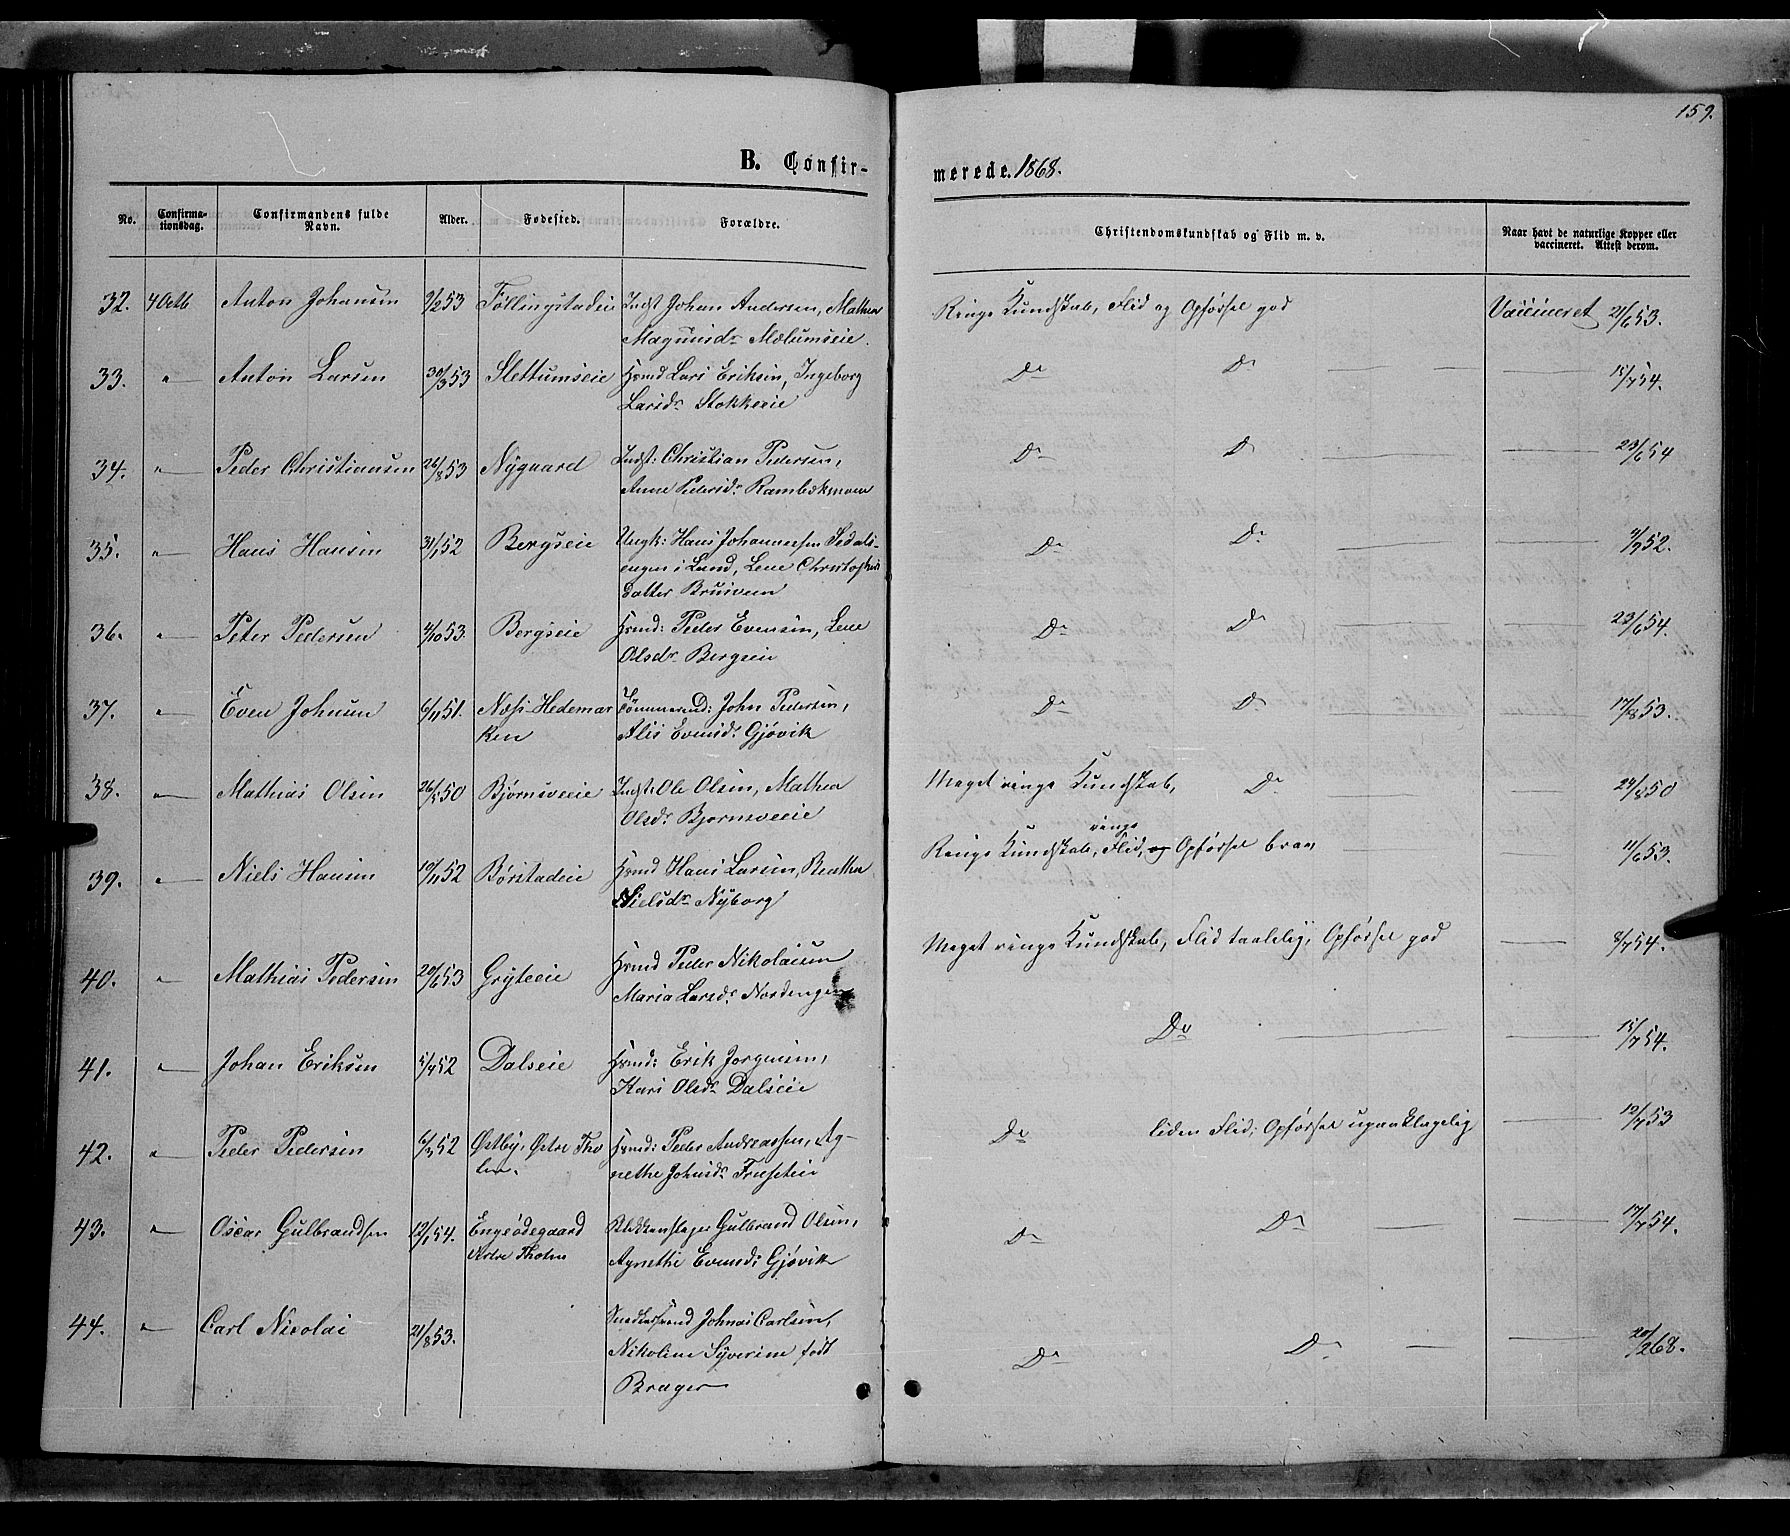 159.
B. Confir-
merede. 1868.
No.
Confirma-
tionsdag.
Confirmandens fulde
Navn.
Alder.
Fødested.
Forældre.
Christendomskundskab og Flid m. v.
Naar havt de naturlige Kopper eller
vaccineret. Attest derom.
32. 4 Octb Anton Johansen 9/2 53 Føllingstadeie Indst Johan Andersen, Mathea
Magnusdr Mælumseie.
Ringe Kundskab, Flid og Opførsel god Vaccineret 21/6 53.
33. " Anton Larsen 30/3 53 Slettumseie Hsmd Lars Eriksen, Ingeborg
Larsdr Stokkeeie
Do Do 15/7 54.
34. " Peder Christiansen 26/8 53 Nygaard Indst: Christian Pedersen,
Anne Pedersdr Rambekmoen
Do Do 23/6 54
35. " Hans Hansen 31/1 52 Bergseie Ungk: Hans Johannessen
engen i Land, Lene Christophers
datter Brusveen
Do Do 9/9 52.
36. " Peter Pedersen 4/10 53. Bergseie Hsmd: Peder Evensen, Lene
Olsdr Bergseie
Do Do 23/6 54.
37. " Even Johnsen 6/11 51. Næs Hedemar
ken
Tømmermd: John Pedersen,
Alis Evensdr Gjøvik
Do Do 17/8 53.
38. " Mathias Olsen 26/5 50 Bjørnsveeie Indst: Ole Olsen, Mathea
Olsdr Bjørnsveeie
Meget ringe Kundskab, Do 24/8 50
39. " Niels Hansen 19/11 52 Børstadeie Hsmd Hans Larsen, Benthe
Nielsdr Nyborg
ringe
Ringe Kundskab, Flid, og Opførsel brav 11/6 53.
40. " Mathias Pedersen 20/6 53 Gryteeie Hsmd Peder Nikolaisen
Maria Larsdr Nordengen
Meget ringe Kundskab, Flid taalelig, Opførsel god 8/7 54.
41. " Johan Eriksen 5/7 52 Dalseie Hsmd: Erik Jorgensen,
Kari Olsdr Dalseie
Do 15/7 54.
42. " Peder Pedersen 6/3 52 Østby, Østre Tho
ten.
Hsmd: Peder Andreassen, Ag-
nethe Johnsdr
Do liden Flid; Opførsel upaaklagelig 12/7 53
43. " Oscar Gulbrandsen 12/1 54. Engeødegaard
Østre Thoten
Blikkenslager Gulbrand Olsen,
Agnethe Evensdr Gjøvik
Do Do 17/7 54.
44. " Carl Nicolai 21/8 53. Snedkersvend Johnas Carlsen,
Nikoline Syverine født
Bræger
Do Do 20/2 68.